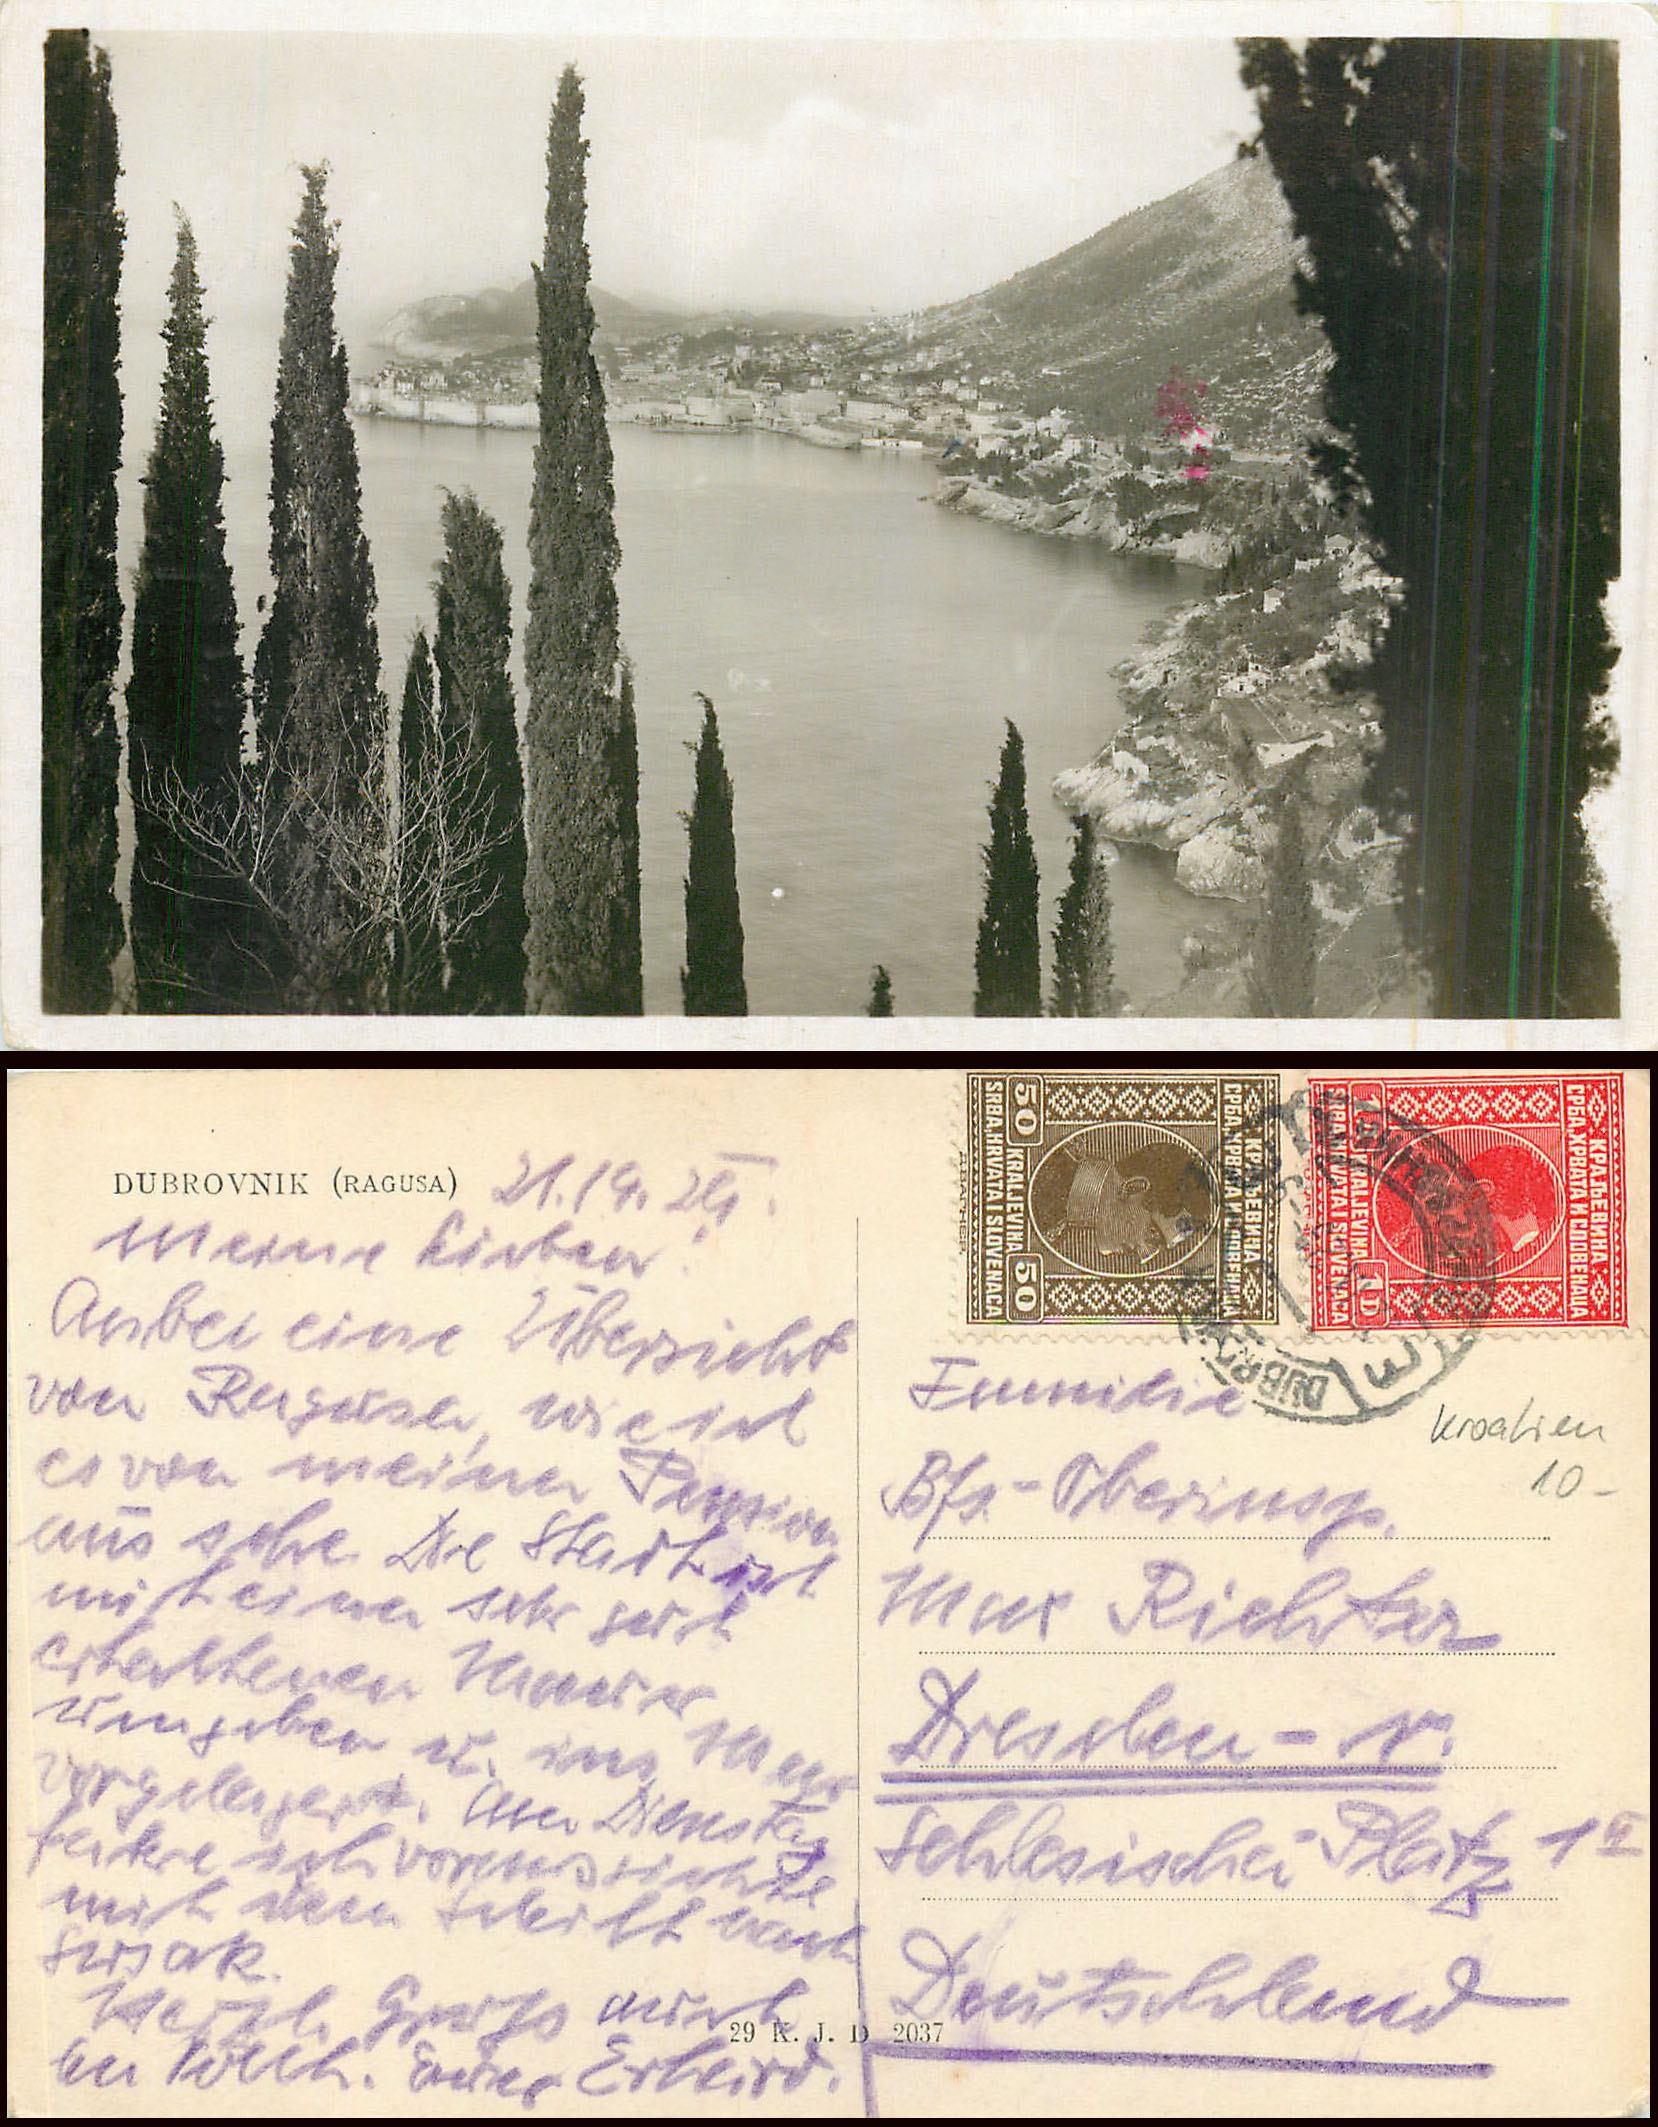 DUBROVNIK (RAGUSA)
Meine Lieben!
Anbei eine Übersicht
von Ragusa, wie ich
es von meiner Pension
aus sehe. Die Stadt ist
mit einer sehr gut
erhaltenen Mauer
umgeben u. ins Meer
vorgelagert. Am Dienstag
fahre ich voraussichtl.
mit dem Schiff nach
Susak.
Herzl. Grüße auch
an Euer Erhard.
29 K. J. D. 2037
50 KRALJEVINA 50
SRBA, HRVATA I SLOVENACA
КРАЉЕВИНА
СРБА, ХРВАТА И СЛОВЕНАЦА
1 KRALJEVINA 1D
SRBA, HRVATA I SLOVENACA
КРАЉЕВИНА
СРБА, ХРВАТА И СЛОВЕНАЦА
DUBROVNIK
Familie
Bfs.-Oberinsp.
Max Richter
Dresden-N.
Schlesischer Platz 1 II
Deutschland
Kroatien
10-